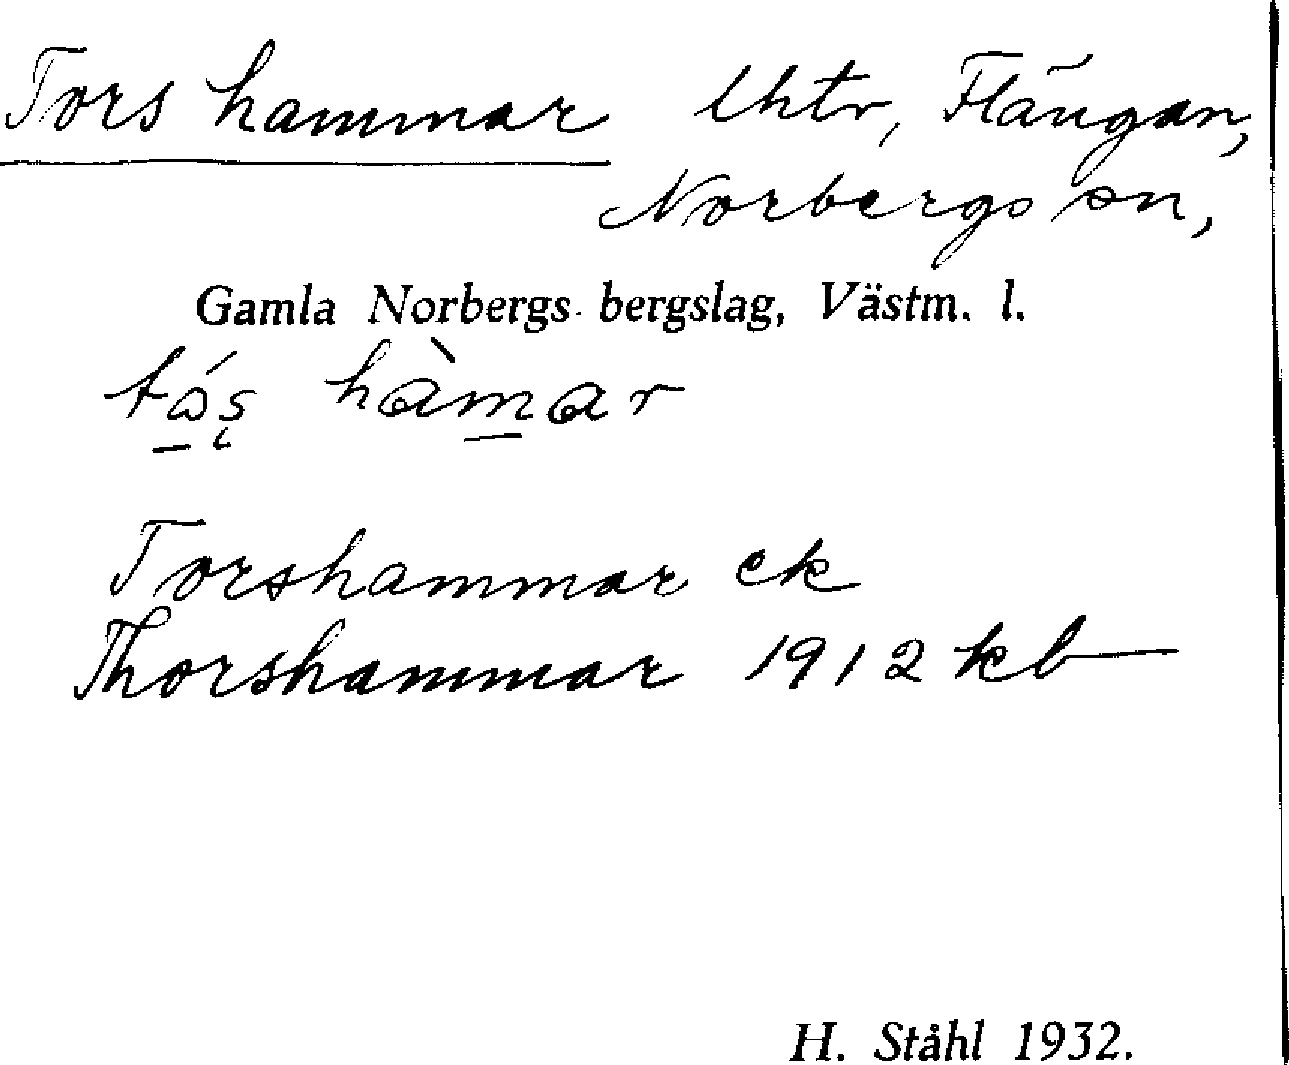 Tors hammar lhtr, Flängan,
Norbergs sn,
Gamla Norbergs bergslag, Västm. l.
Torshammar ek
Thorshammar 1912 kb
H. Ståhl 1932.